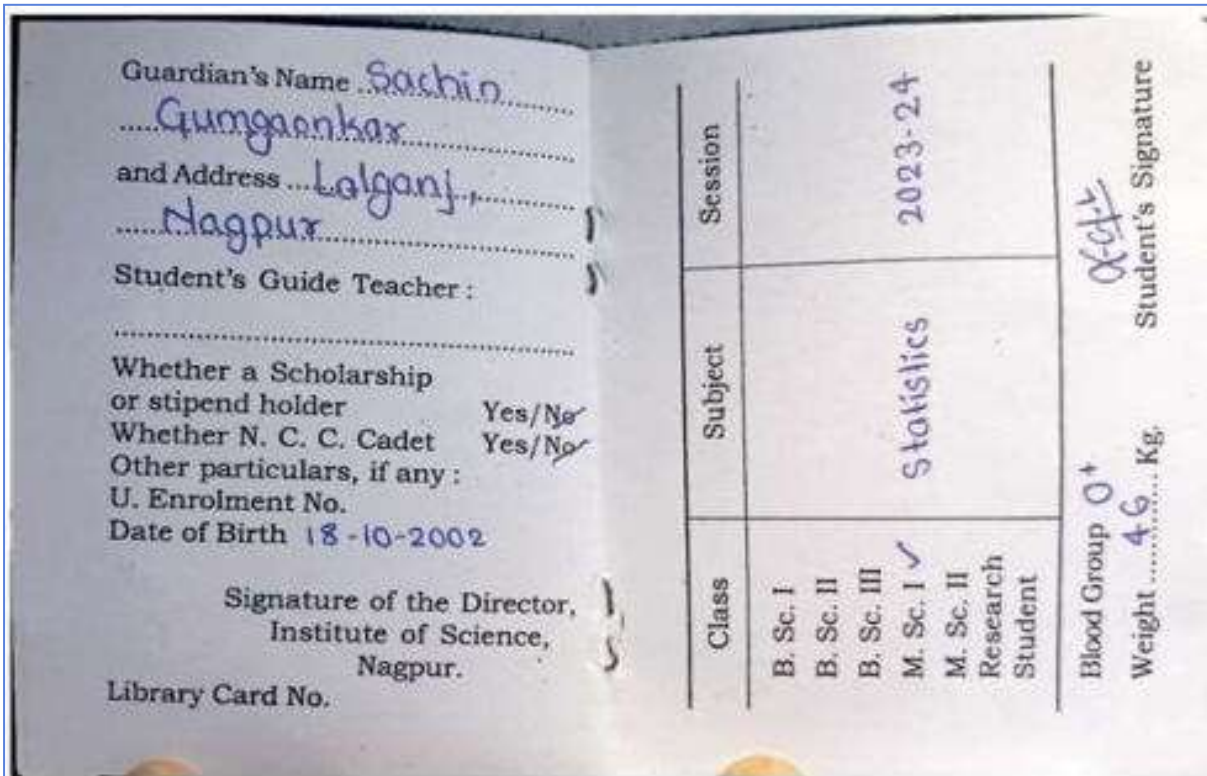 Guardian's Name ..Sachin........
.....Gumgaonkar..............................
and Address ...Lalganj.,...............
.....Nagpur...................................
Student's Guide Teacher :
.........................................................
Whether a Scholarship
or stipend holder Yes/No
Whether N. C. C. Cadet Yes/No
Other particulars, if any :
U. Enrolment No.
Date of Birth 18-10-2002
Signature of the Director,
Institute of Science,
Nagpur.
Library Card No.
Class Subject Session
B. Sc. I
B. Sc. II
B. Sc. III
M. Sc. I ✓ Statistics 2023-24
M. Sc. II
Research
Student
Blood Group O+
Weight ....46...... Kg. Student's Signature